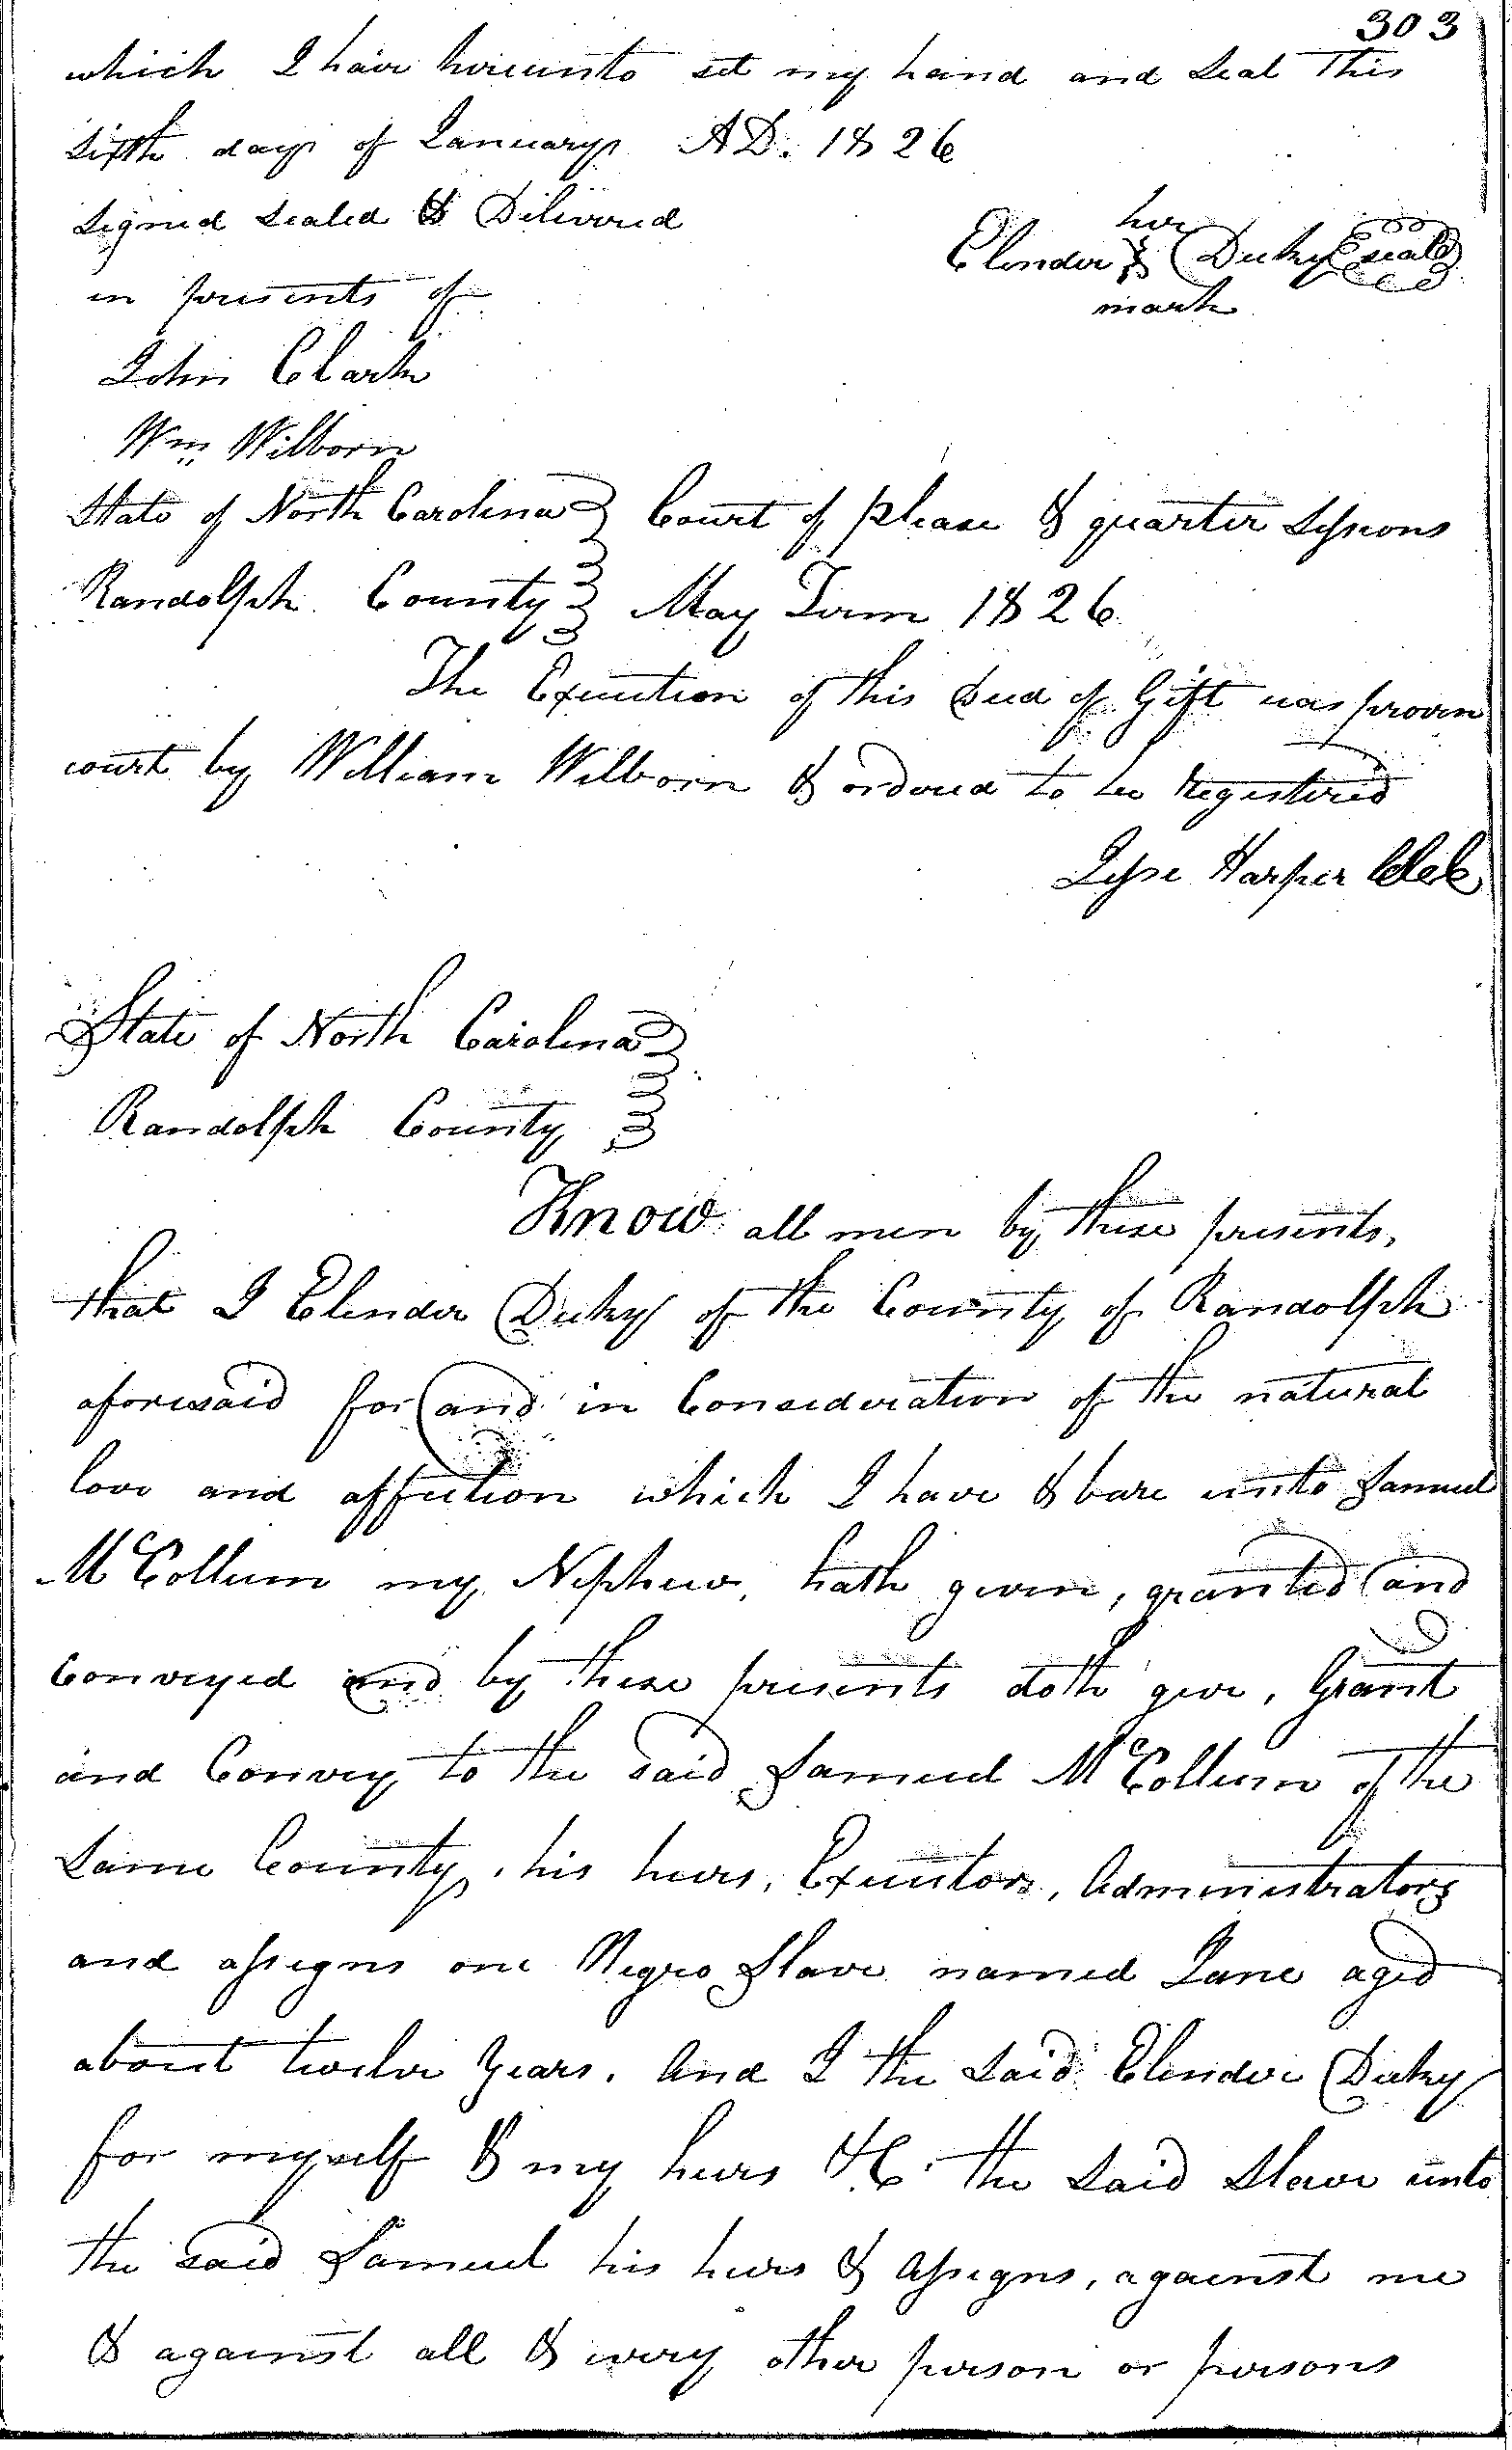 303
which I have hereunto set my hand and seal this
sixth day of January AD. 1826
signed sealed & Delivered
in presents of
her
Elender X Dicky seal
mark
John Clark
Wm Wilborn
State of North Carolina Court of please & quarter Sessions
Randolph County May Term 1826
The Execution of this Deed of Gift was proven
court by William Wilborn & ordered to be registered
Jesse Harper Clk
State of North Carolina
Randolph County
Know all men by these presents,
that I Elender Dicky of the County of Randolph
aforesaid for and in Consideration of the natural
love and affection which I have & bare unto Samuel
McCollum my Nephew, hath given, granted and
Conveyed and by these presents doth give, Grant
and Convey to the said Samuel McCollum of the
Same County, his heirs, Executors, Administrators
and assigns one Negro Slave named Jane aged
about twelve Years. And I the Said Elender Dicky
for myself & my heirs &C. the Said Slave unto
the said Samuel his heirs & Assigns, against me
& against all & every other person or persons